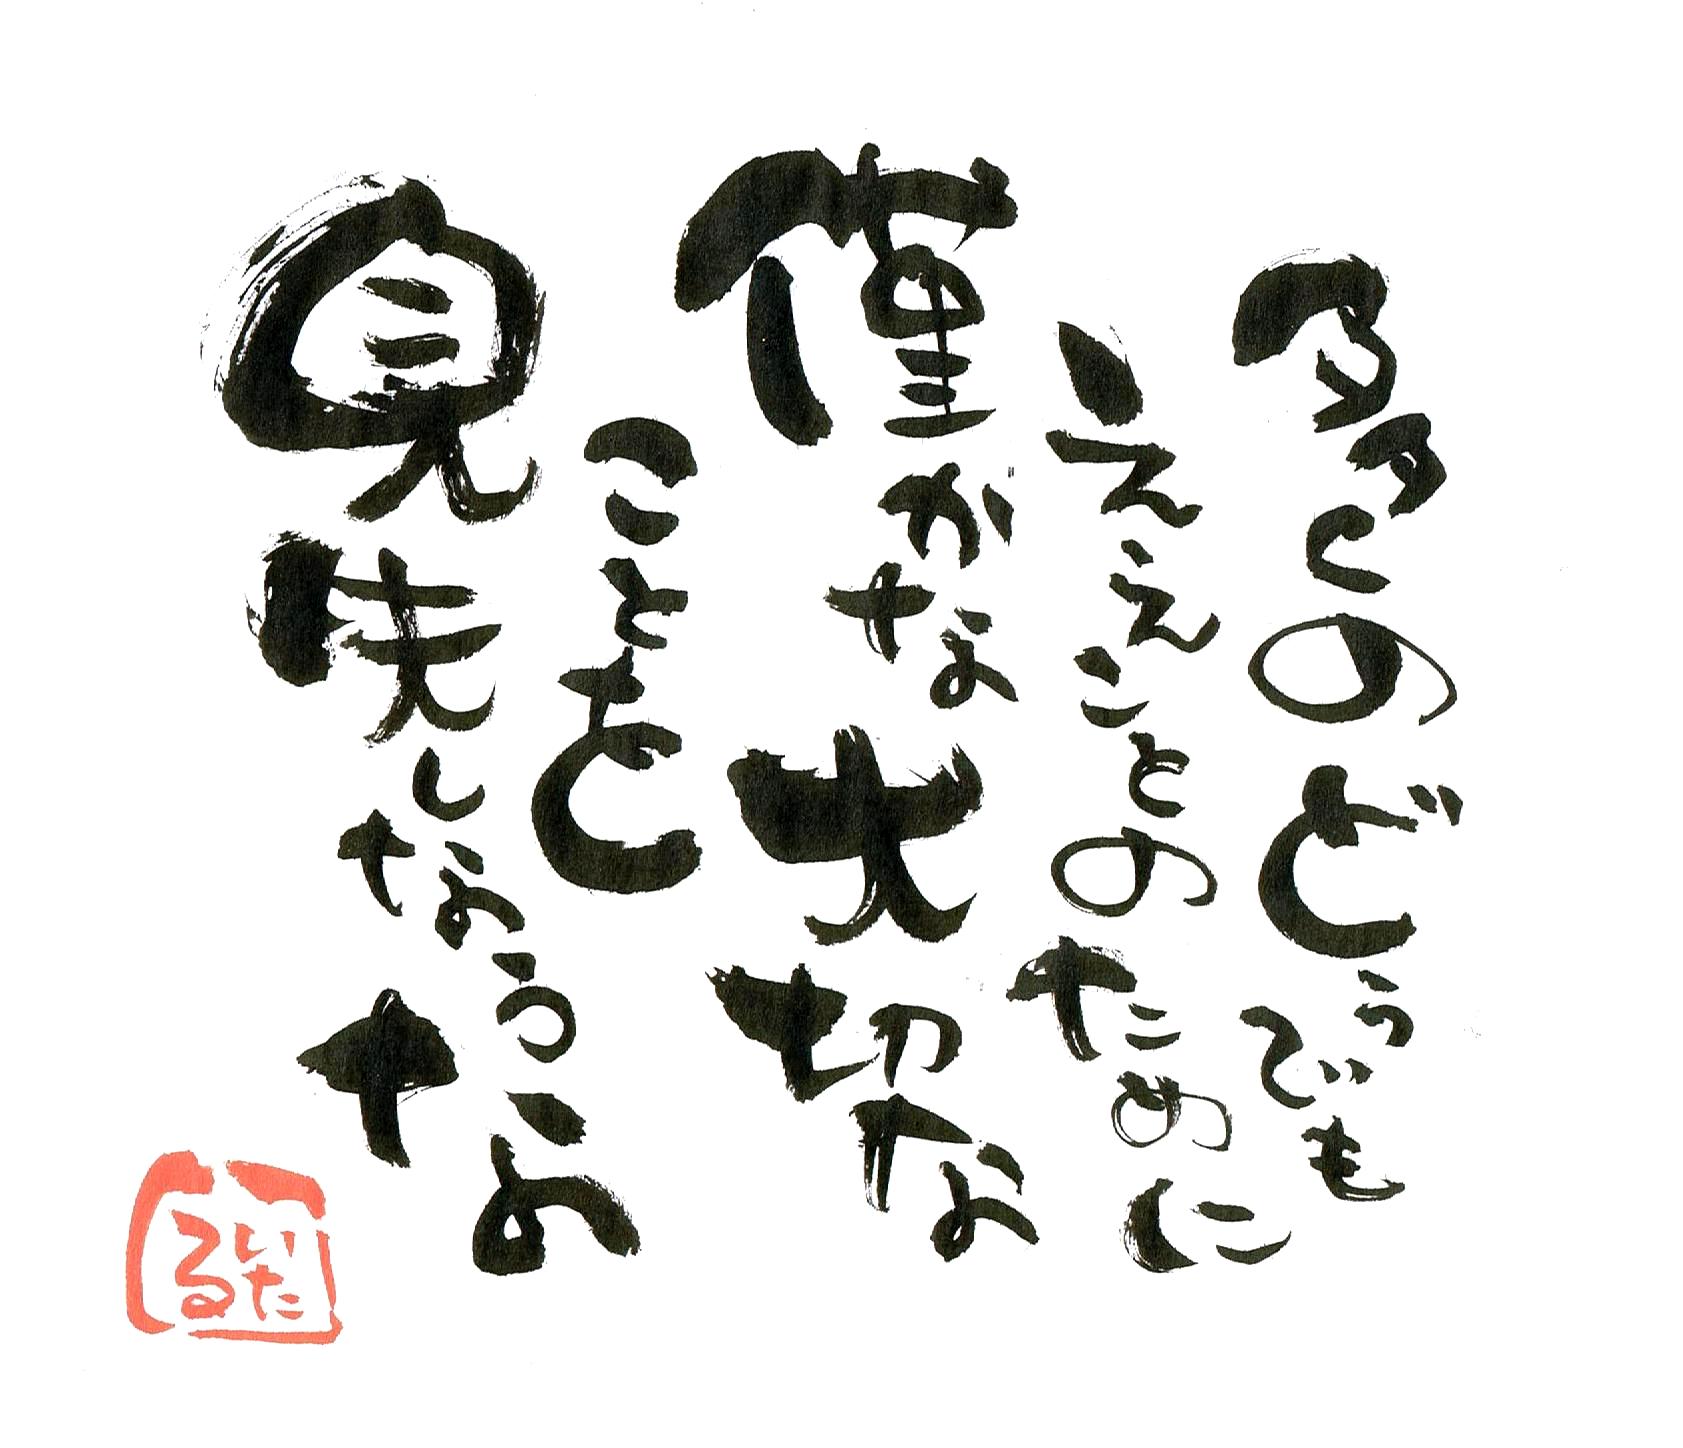 多くのどうでも
ええことのために
僅かな大切な
ことを
見失しなうな
いた
る